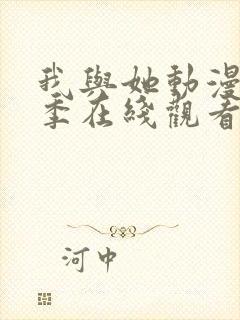 我與她動漫
季在綫觀看
河中